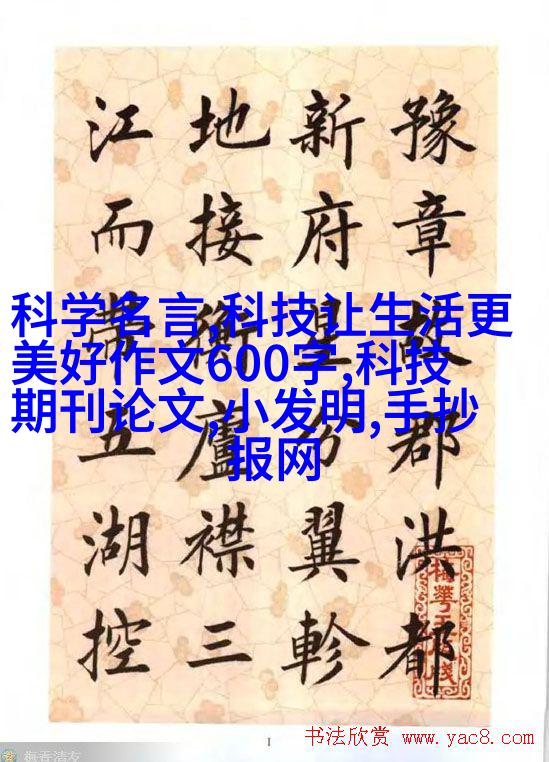 豫章故郡洪都
新府星分翼軫
地接衡廬襟三
江而帶五湖控
科学名言,科技让生活更
美好作文600字,科技
期刊论文,小发明,手抄
报网
1
书法欣赏 www.yac8.com
梅香清友